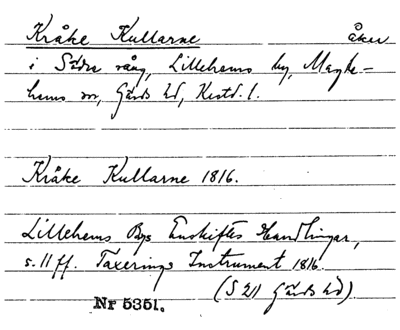 Kråke Kullarne åker
i Södra vång, Lillehems by, Magle-
hems sn, Gärds hd, Kristd. l.
Kråke Kullarne 1816.
Lillehems Bys Enskiftes Handlingar,
s. 11 ff. Taxerings Instrument 1816.
(S 21 Gärds hd).
Nr 5351.